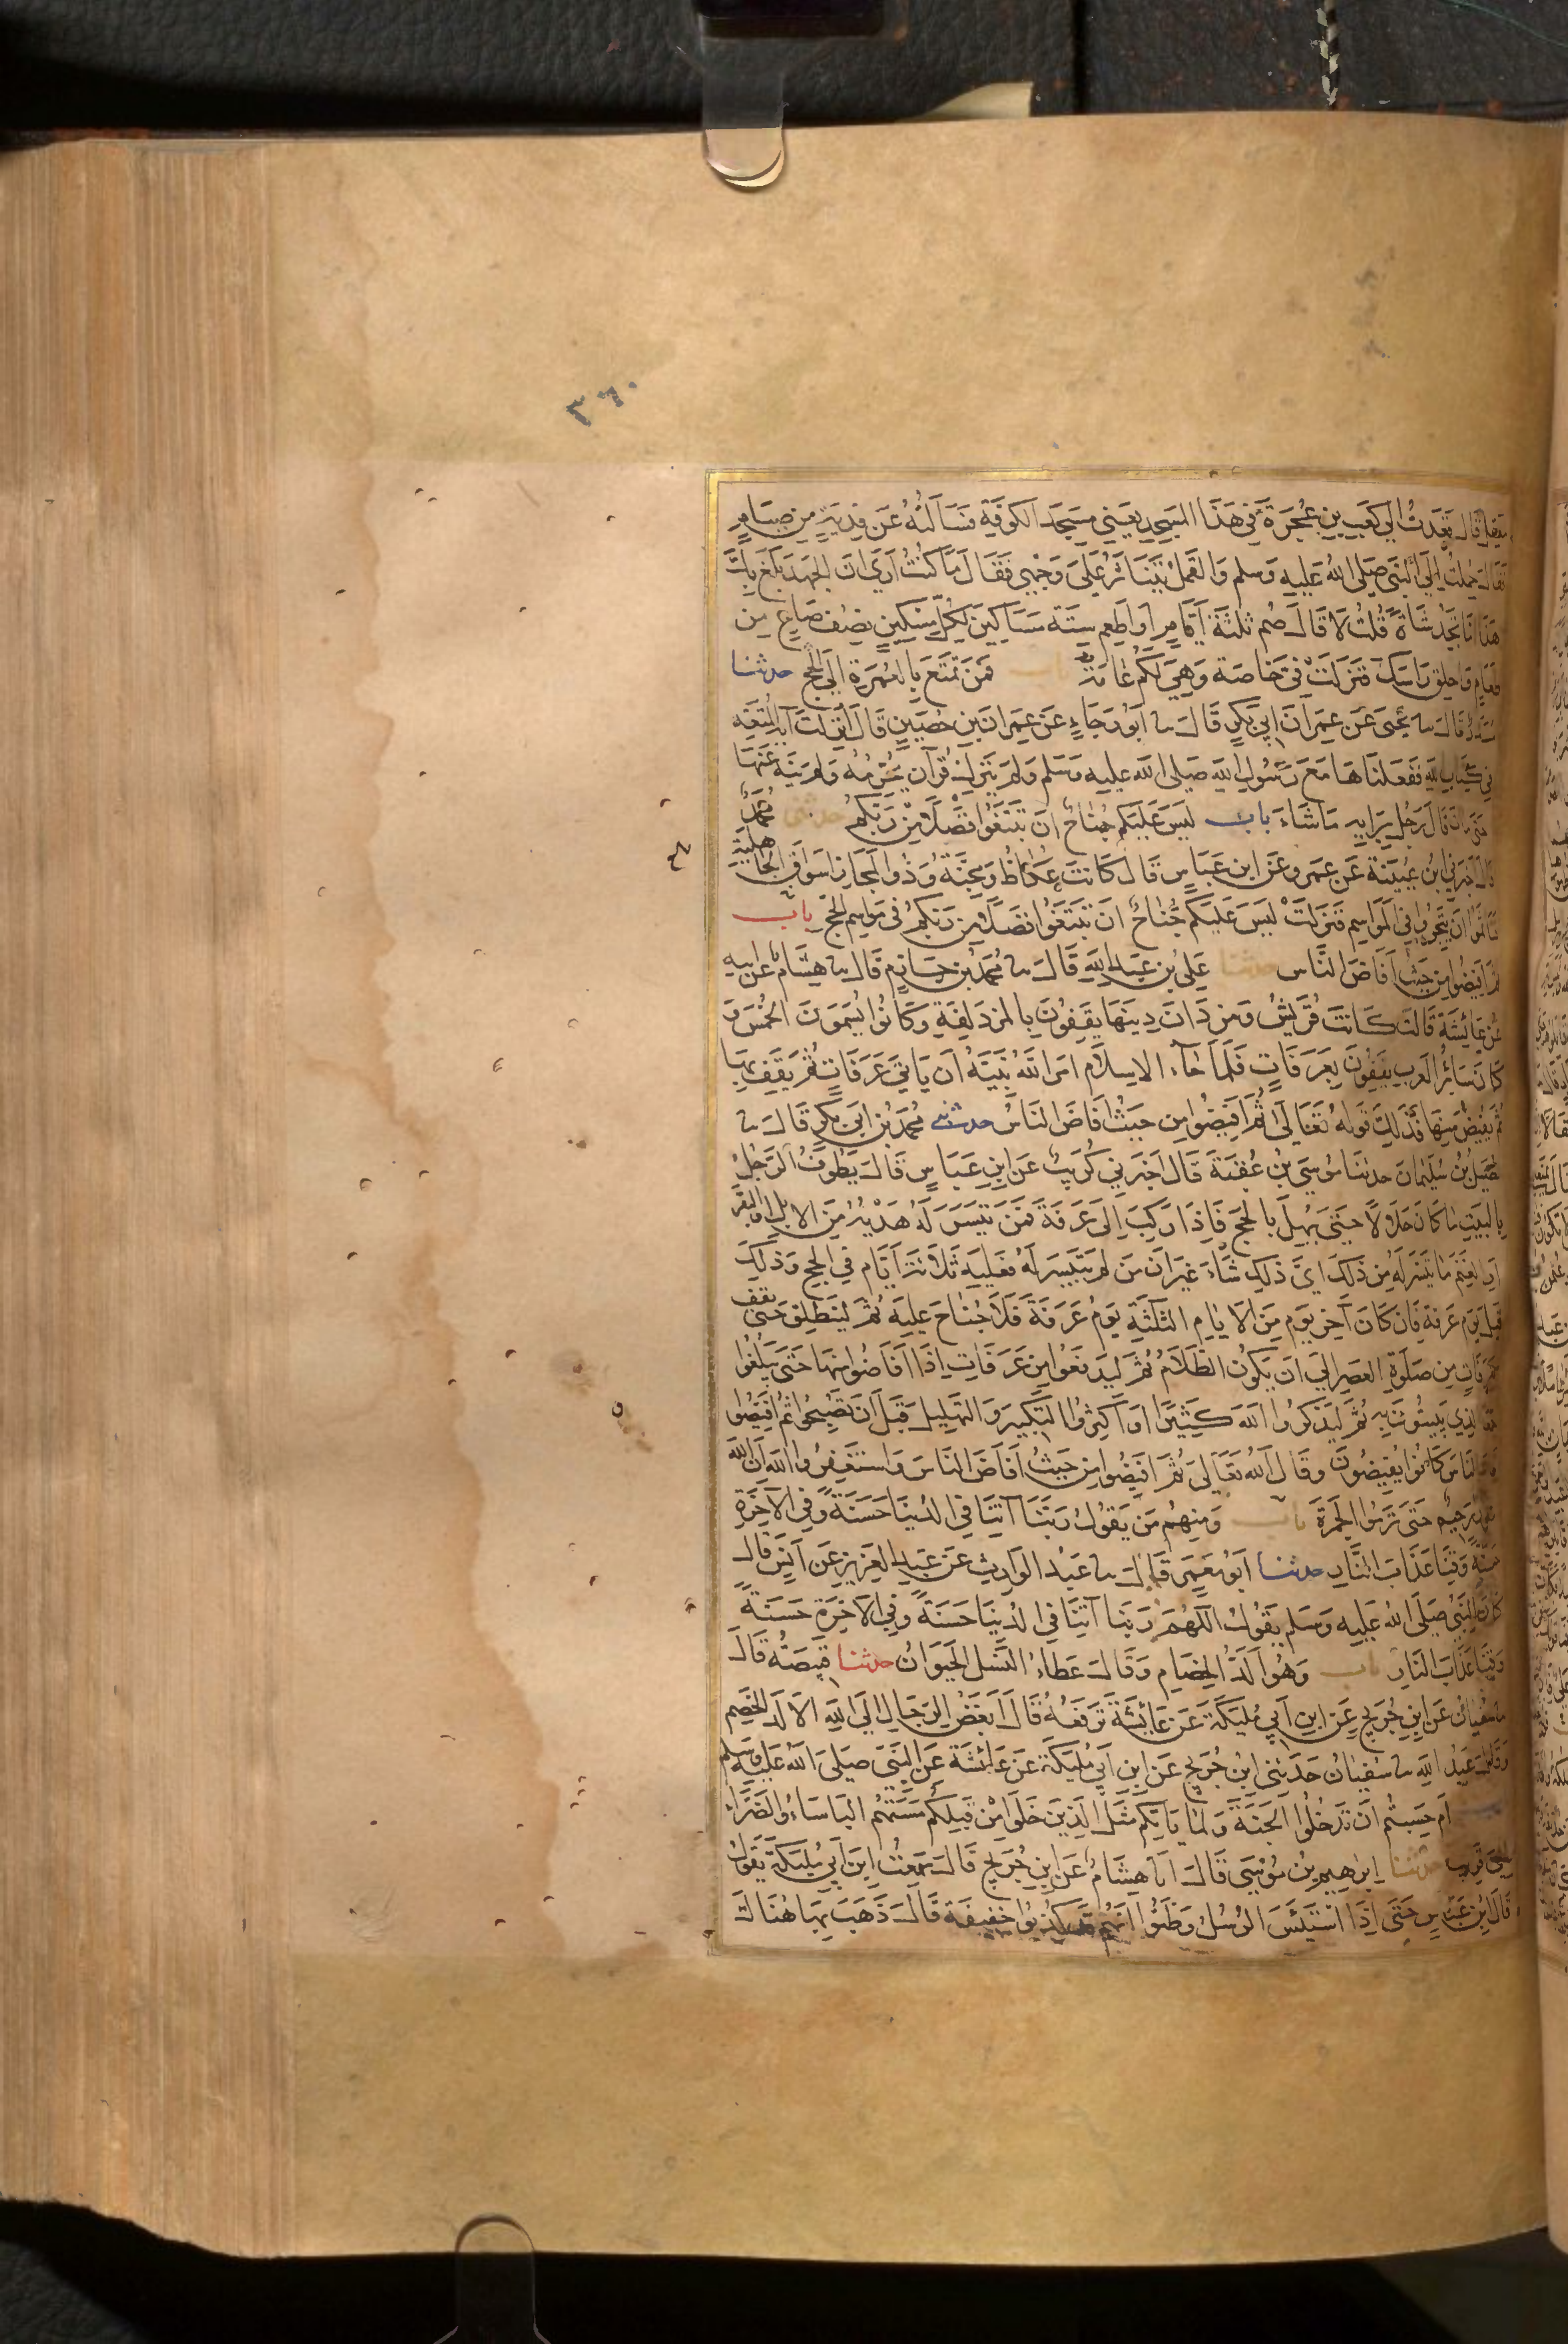 ٣٦٠
معقل قال قعدت الى كعب بن عجرة فى هذا المسجد يعني مسجد الكوفة فسألته عن فدية من صيام
فقال حملت الى النبى صلى الله عليه وسلم والقمل يتناثر على وجهي فقال ما كنت ارى ان الجهد بلغ بك
هذا اما تجد شاة قلت لا قال صم ثلثة ايام او اطعم ستة مساكين لكل مسكين نصف صاع من
طعام واحلق راسك فنزلت فى خاصة وهي لكم عامة باب فمن تمتع بالعمرة الى الحج حدثنا
مسدد قال سا يحيى عن عمران ابي بكر قال سا ابو رجاء عن عمران بن حصين قال انزلت آية المتعة
في كتاب الله ففعلناها مع رسول الله صلى الله عليه وسلم ولم ينزل قرآن يحرمه ولم ينه عنها
حتى مات قال رجل برايه ما شاء باب ليس عليكم جناح ان تبتغوا فضلا من ربكم حدثنى محمد
قال اخبرني ابن عيينة عن عمرو عن ابن عباس قال كانت عكاظ ومجنة وذو المجاز اسواق الجاهلية
فتاثموا ان يتجروا في المواسم فنزلت ليس عليكم جناح ان تبتغوا فضلا من ربكم فى مواسم الحج باب
ثم افيضوا من حيث افاض الناس حدثنا على بن عبد الله قال سا محمد بن حازم قال سا هشام عن ابيه
عن عائشة قالت كانت قريش ومن دان دينها يقفون بالمزدلفة وكانوا يسمون الحمس و
كان سائر العرب يقفون بعرفات فلما جاء الاسلام امر الله نبيه ان ياتي عرفات ثم يقف بها
ثم يفيض منها فذلك قوله تعالى ثم افيضوا من حيث افاض الناس حدثنى محمد بن ابي بكر قال سا
فضيل بن سليمان حدثنا موسى بن عقبة قال اخبرني كريب عن ابن عباس قال يطوف الرجل
بالبيت ما كان حلالا حتى يهل بالحج فاذا ركب الى عرفة فمن تيسر له هدية من الابل او البقر
او الغنم ما تيسر له من ذلك اى ذلك شاء غير ان من لم يتيسر له فعليه ثلاثة ايام في الحج وذلك
قبل يوم عرفة فان كان آخر يوم من الايام الثلثة يوم عرفة فلا جناح عليه ثم لينطلق حتى يقف
بعرفات من صلوة العصر الى ان يكون الظلام ثم ليدفعوا من عرفات اذا افاضوا منها حتى يبلغوا
جمعا الذي يبيتون به ثم ليذكروا الله كثيرا او اكثروا التكبير والتهليل قبل ان تصبحوا ثم افيضوا
فان الناس كانوا يفيضون وقال الله تعالى ثم افيضوا من حيث افاض الناس واستغفروا الله ان الله
غفور رحيم حتى ترموا الجمرة باب ومنهم من يقول ربنا آتنا في الدنيا حسنة وفي الآخرة
حسنة وقنا عذاب النار حدثنا ابو معمر قال سا عبد الوارث عن عبد العزيز عن انس قال
كان النبي صلى الله عليه وسلم يقول اللهم ربنا آتنا في الدنيا حسنة وفي الآخرة حسنة
وقنا عذاب النار باب وهو الد الخصام وقال عطاء النسل الحيوان حدثنا قبيصة قال
سا سفيان عن ابن جريج عن ابن ابي مليكة عن عائشة ترفعه قال ابغض الرجال الى الله الالد الخصم
وقال عبد الله سا سفيان حدثني ابن جريج عن ابن ابي مليكة عن عائشة عن النبى صلى الله عليه وسلم
ام حسبتم ان تدخلوا الجنة ولما ياتكم مثل الذين خلوا من قبلكم مستهم الباساء والضراء
الى قريب حدثنا ابرهيم بن موسى قال انا هشام عن ابن جريج قال سمعت ابن ابي مليكة يقول
قال ابن عباس حتى اذا استيئس الرسل وظنوا انهم قد كذبوا خفيفة قال ذهب بها هناك